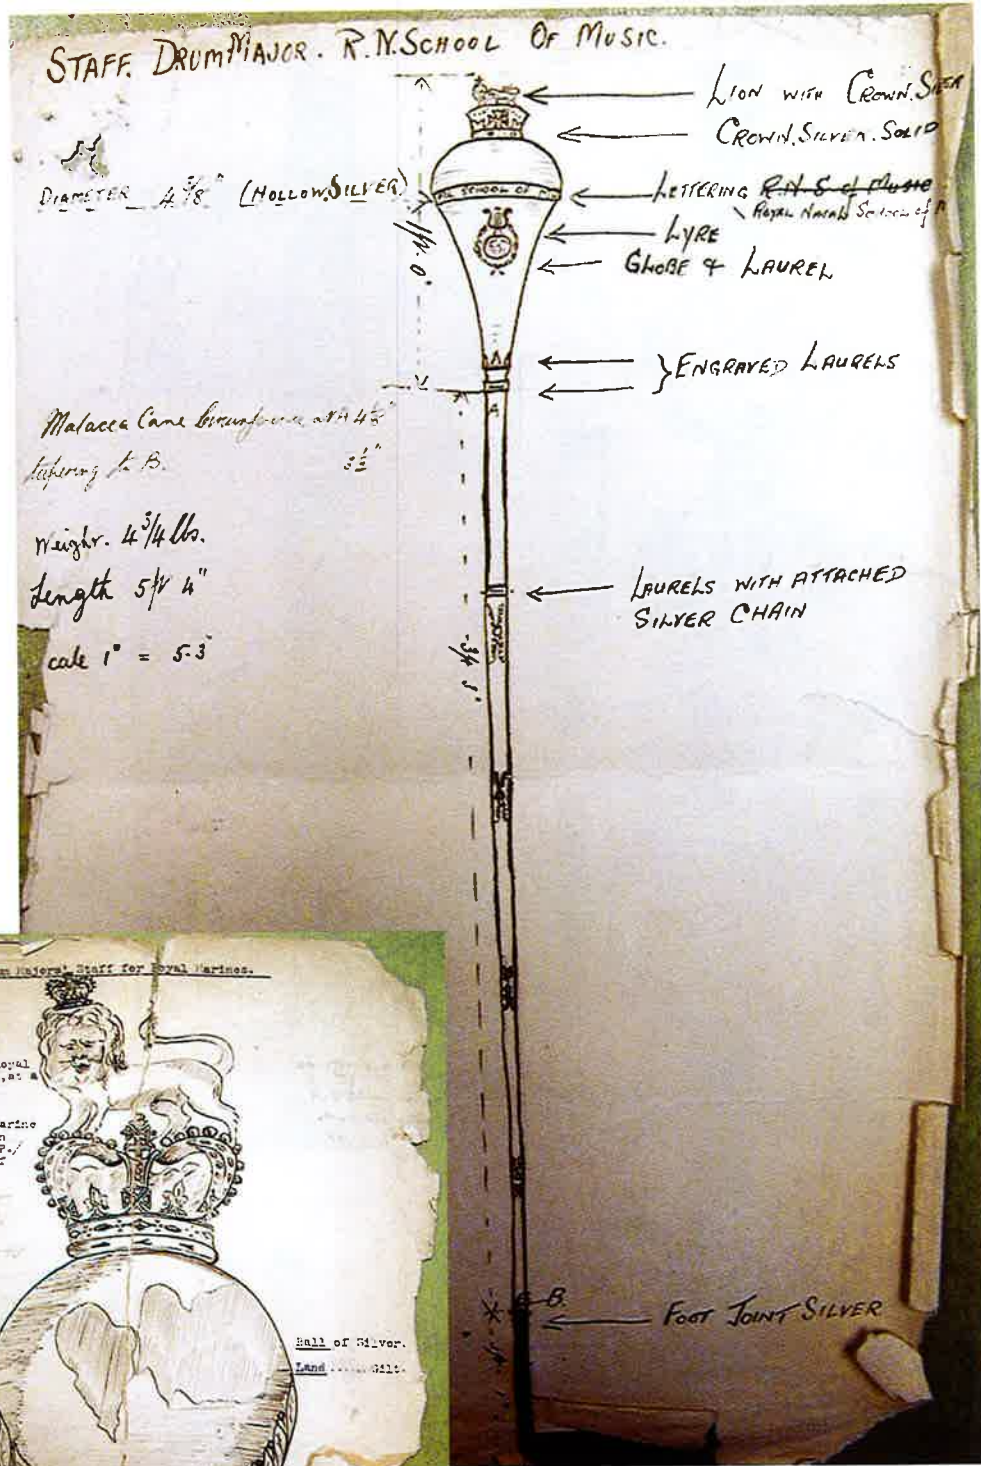 STAFF. DRUM MAJOR. R.N. SCHOOL OF MUSIC.
LION WITH CROWN.
CROWN. SILVER. SOLID
DIAMETER 4 5/8" (HOLLOW. SILVER)
SCHOOL OF
LETTERING R.N.S of Music
ROYAL NAVAL SCHOOL of
1 ft. 0"
LYRE
GLOBE & LAUREL
} ENGRAVED LAURELS
A
Malacca Cane Circumference at A
tapering to B.
Weight. 4 3/4 lbs.
Length 5 ft 4"
cale 1" = 5.3"
LAURELS WITH ATTACHED
SILVER CHAIN
B.
FOOT JOINT SILVER
Majors' Staff for Royal Marines.
oyal
, at a
arine
Ball of Silver.
Land ...... Gilt.